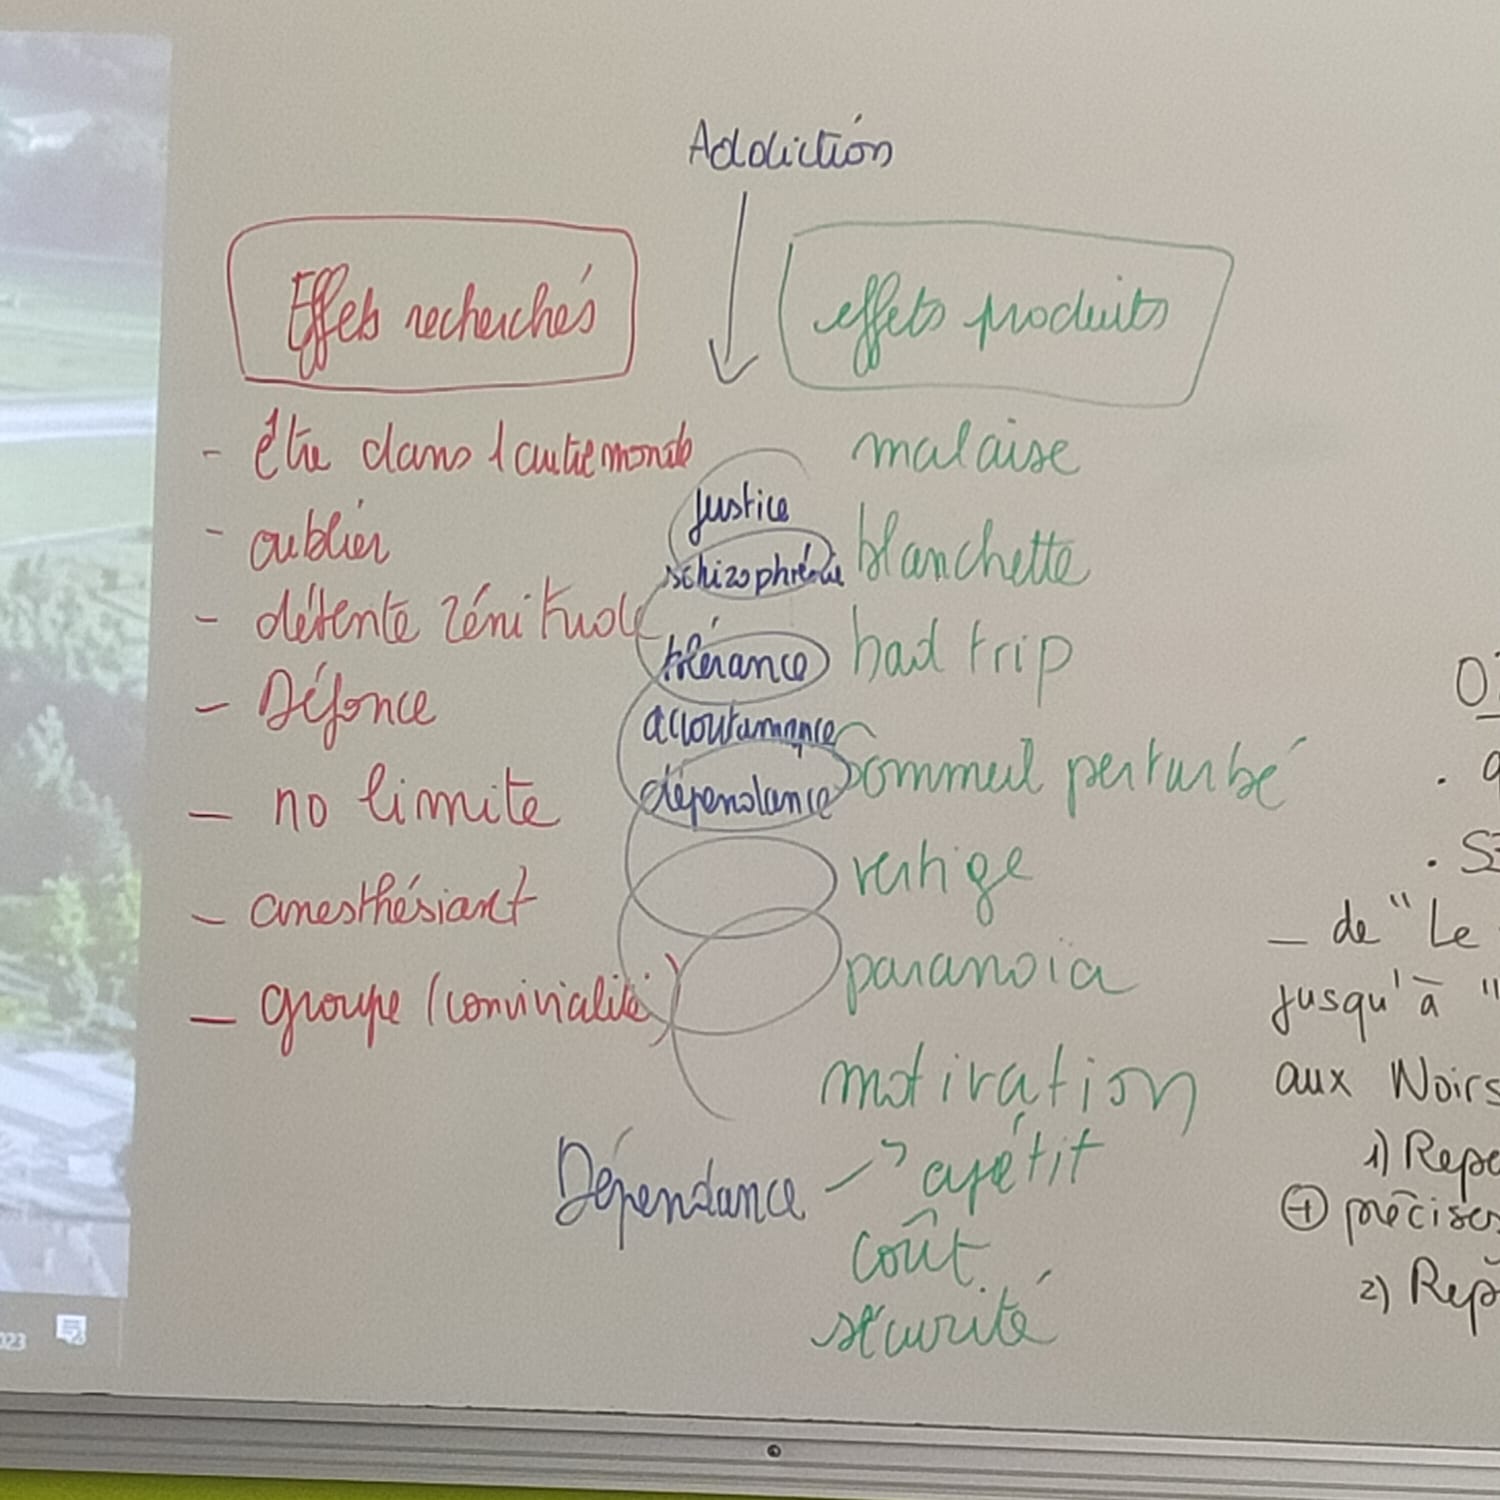 Addiction
Effets recherchés
- être dans l'autre monde
- oublier
- détente zénitude
- Défonce
- no limite
- anesthésiant
- groupe (convivialité)
justice
schizophrénie
tolérance
accoutumance
dépendance
Dépendance
effets produits
malaise
blanchette
bad trip
Sommeil perturbé
vertige
paranoïa
motivation
apétit
coût
sécurité
- de "Le
jusqu'à "
aux Noirs
1)
+ précises
2)
023